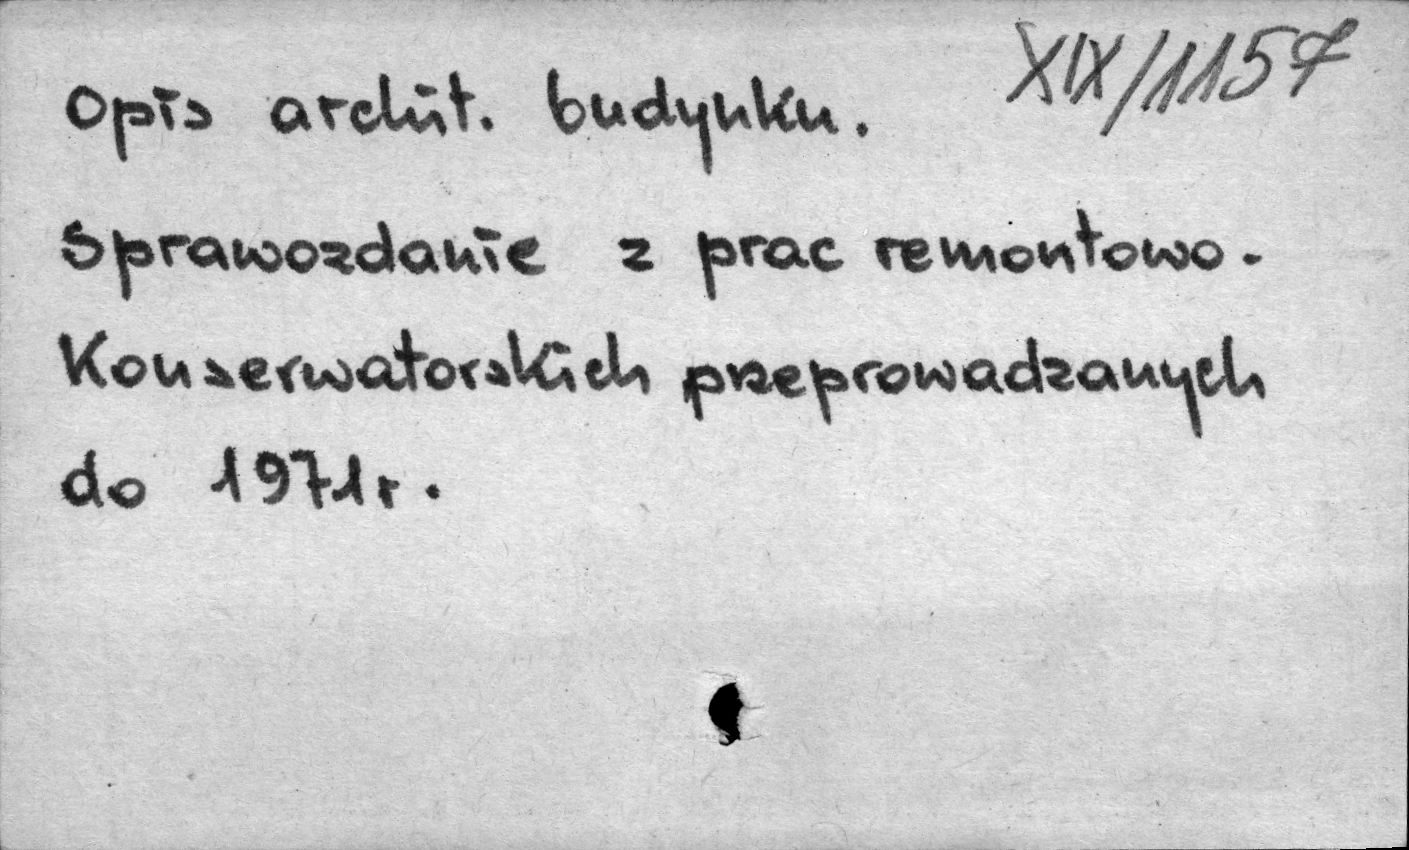 XIX/1157
Opis archit. budynku.
Sprawozdanie z prac remontowo-
Konserwatorskich przeprowadzanych
do 1971r.